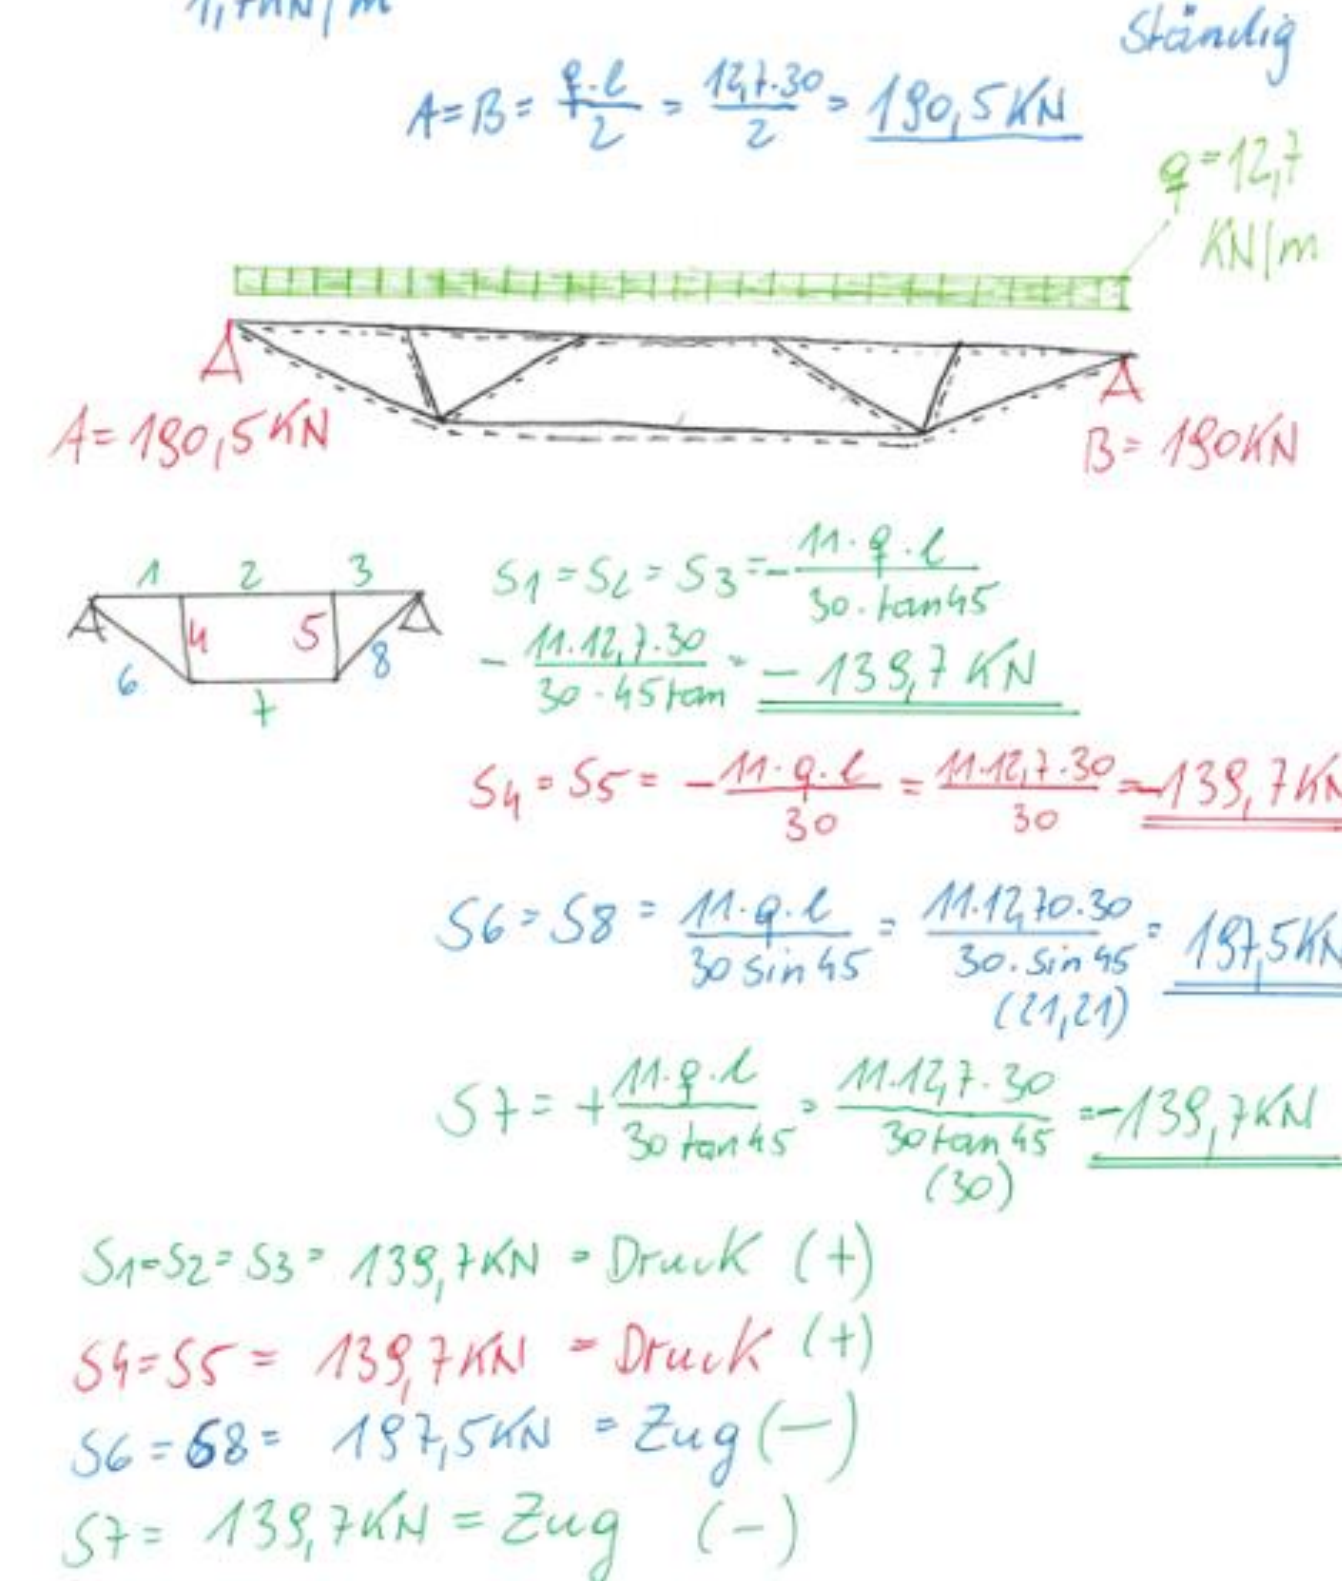 1,7KN/m
Ständig
A=B= q·l/2 = 12,7·30/2 = 190,5KN
q=12,7
KN/m
A=190,5KN
B= 190KN
1 2 3
4 5
6 8
7
S1=S2=S3=- 11·q·l/30·tan45
- 11·12,7·30/30·45tan = -139,7 KN
S4=S5= -11·q·l/30 = 11·12,7·30/30 = -139,7KN
S6=S8= 11·q·l/30 sin45 = 11·12,70·30/30·sin45 = 197,5KN
(21,21)
S7= + 11·q·l/30 tan45 = 11·12,7·30/30 tan45 = -139,7KN
(30)
S1=S2=S3= 139,7KN = Druck (+)
S4=S5= 139,7KN = Druck (+)
S6=S8= 197,5KN = Zug (-)
S7= 139,7KN = Zug (-)